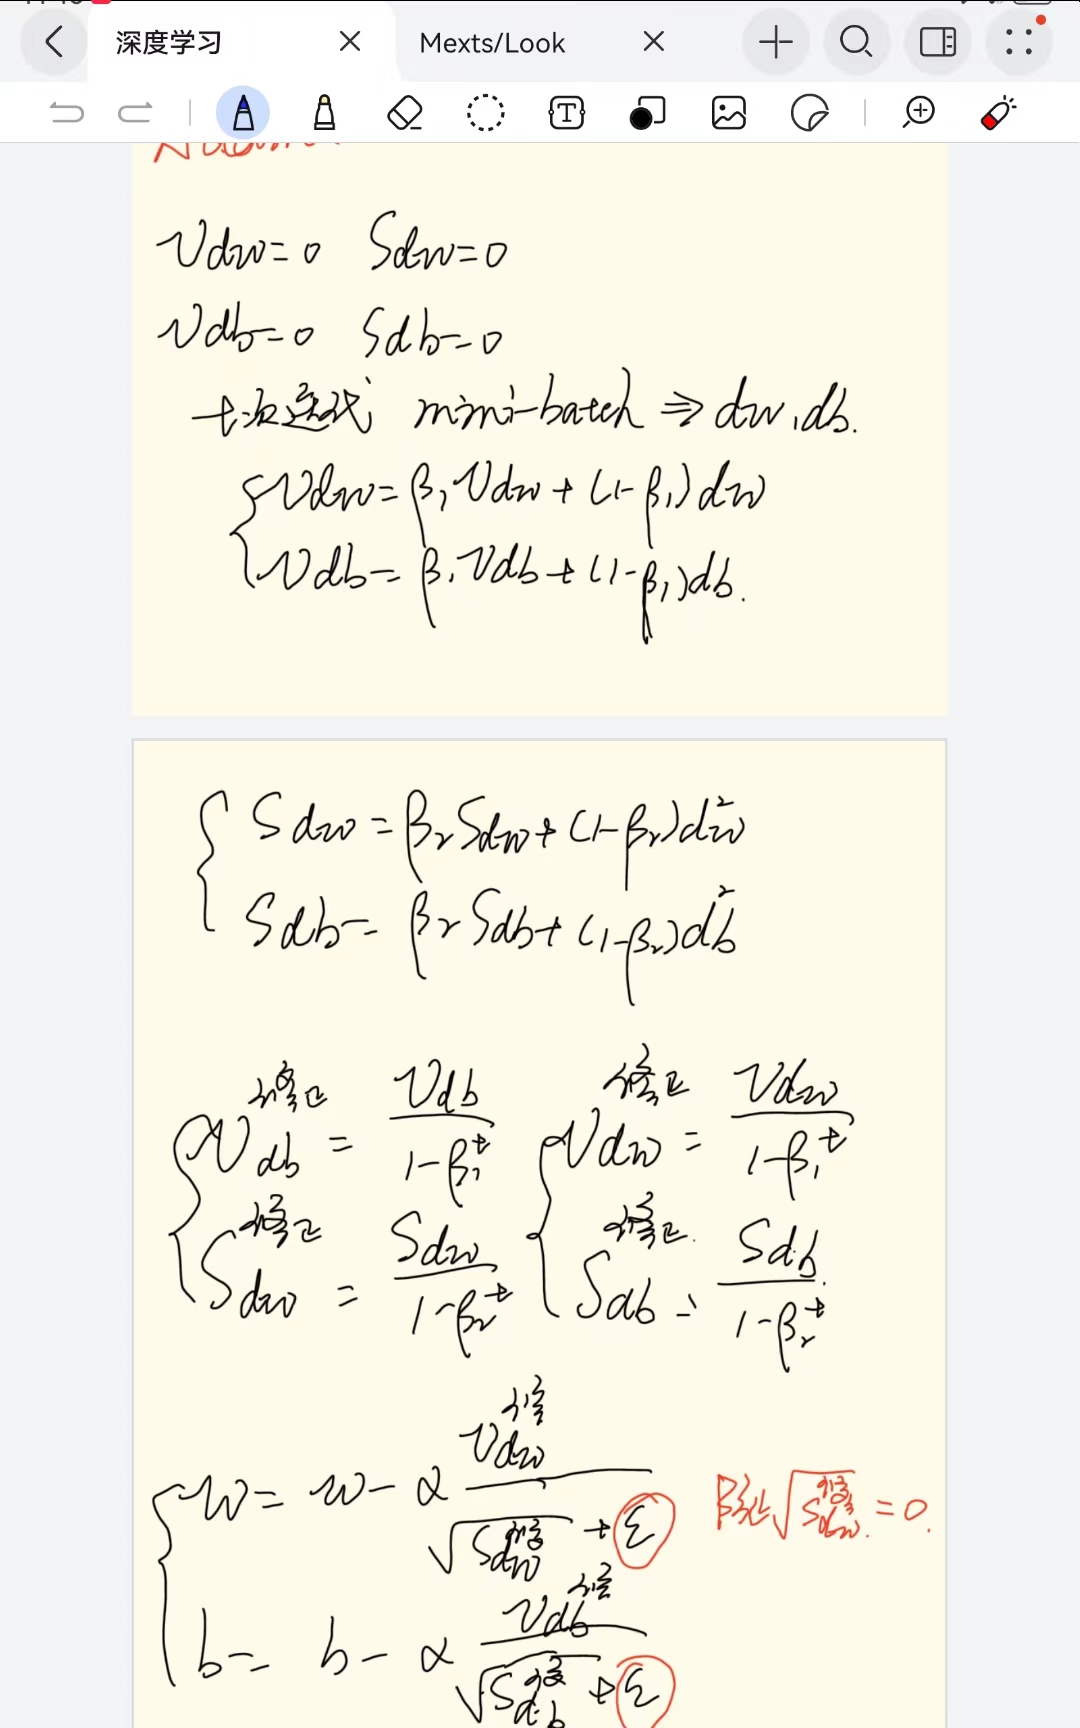 深度学习 Mexts/Look
Vdw=0 Sdw=0
Vdb=0 Sdb=0
t次迭代 mini-batch ⇒ dw,db.
{Vdw=β₁Vdw+(1-β₁)dw
Vdb=β₁Vdb+(1-β₁)db.
{Sdw=β₂Sdw+(1-β₂)dw²
Sdb=β₂Sdb+(1-β₂)db²
{Vdb修正 = Vdb/(1-β₁ᵗ) {Vdw修正 = Vdw/(1-β₁ᵗ)
Sdw修正 = Sdw/(1-β₂ᵗ) Sdb修正. = Sdb/(1-β₂ᵗ)
{w = w - α Vdw修/(√Sdw修 + ε) 防止√Sdw修.=0.
b = b - α Vdb修/(√Sdb修 + ε)